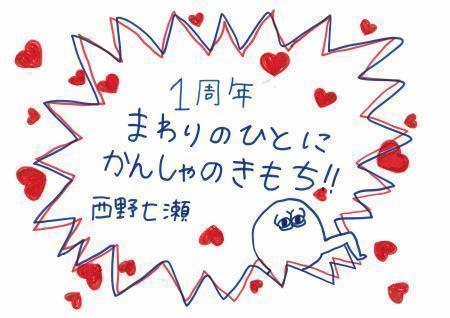 1周年
まわりのひとに
かんしゃのきもち!!
西野七瀬